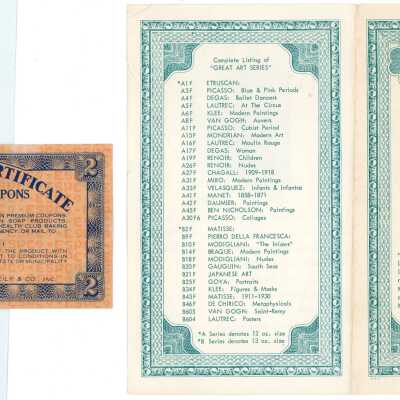 CERTIFICATE
2 2
PREMIUM COUPONS
SOAP PRODUCTS
HEALTH CLUB BAKING
OR MAIL TO
OF THE PRODUCT WITH
TO CONDITIONS IN
STATE OR MUNICIPALITY
& CO. INC.
2
Complete Listing of
"GREAT ART SERIES"
*A1F ETRUSCAN:
A3F PICASSO: Blue & Pink Periods
A4F DEGAS: Ballet Dancers
A5F LAUTREC: At The Circus
A6F KLEE: Modern Paintings
A8F VAN GOGH: Auvers
A11F PICASSO: Cubist Period
A15F MONDRIAN: Modern Art
A16F LAUTREC: Moulin Rouge
A17F DEGAS: Women
A19F RENOIR: Children
A26F RENOIR: Nudes
A27F CHAGALL: 1909-1918
A31F MIRO: Modern Paintings
A35F VELASQUEZ: Infants & Infantas
A41F MANET: 1858-1871
A42F DAUMIER: Paintings
A45F BEN NICHOLSON: Paintings
A30F6 PICASSO: Collages
*B2F MATISSE:
B9F PIERO DELLA FRANCESCA:
B10F MODIGLIANI: "The Intense"
B14F BRAQUE: Modern Paintings
B18F MODIGLIANI: Nudes
B20F GAUGUIN: South Seas
B21F JAPANESE ART
B25F GOYA: Portraits
B36F KLEE: Figures & Masks
B43F MATISSE: 1911-1930
B46F DE CHIRICO: Metaphysicals
B603 VAN GOGH: Saint-Remy
B604 LAUTREC: Posters
*A Series denotes 12 oz. size
*B Series denotes 13 oz. size